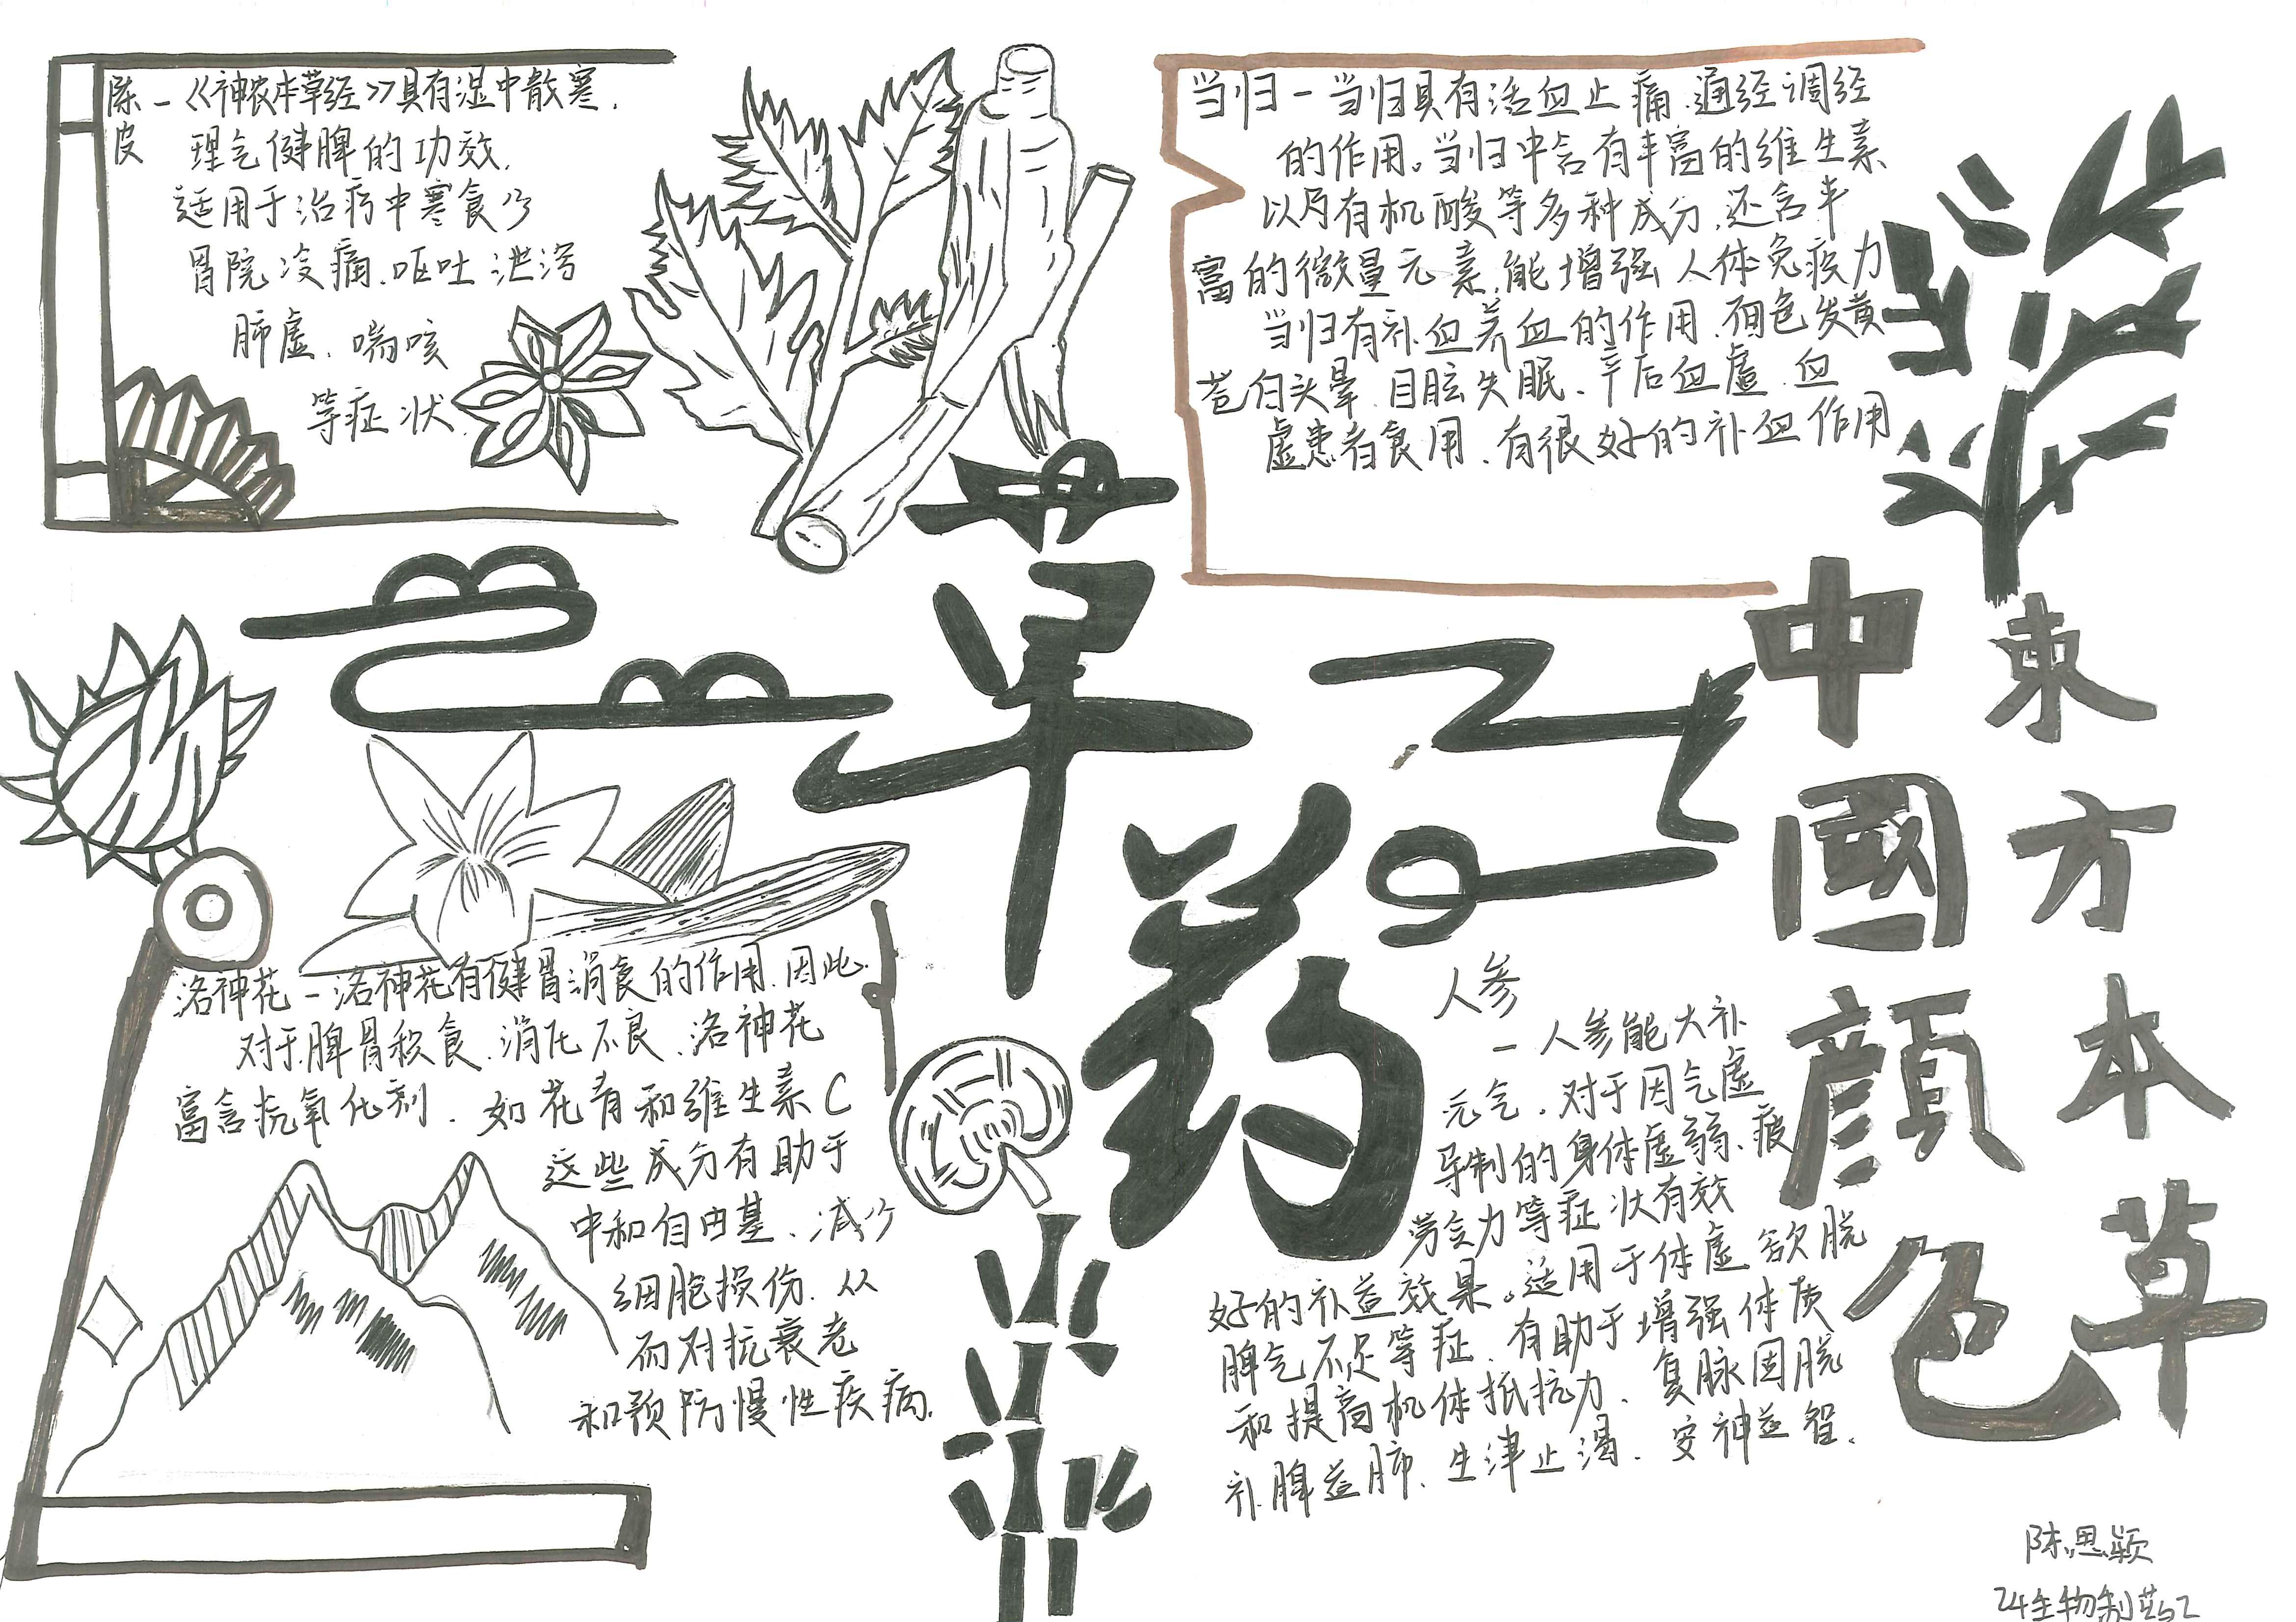 陈皮
一《神农本草经》具有湿中散寒.
理气健脾的功效.
适用于治疗中寒食少
胃院冷痛.呕吐泄泻
肺虚.喘咳
等症状.
当归一当归具有活血止痛.通经调经
的作用。当归中含有丰富的维生素
以及有机酸等多种成分.还含丰
富的微量元素.能增强人体免疫力
当归有补血养血的作用.面色发黄
苍白头晕.目眩失眠.产后血虚.血
虚患者食用.有很好的补血作用
草药
中國顔色
東方本草
洛神花一洛神花有健胃消食的作用.因此.
对于脾胃积食.消化不良.洛神花
富含抗氧化剂.如花青和维生素C
这些成分有助于
中和自由基.减少
细胞损伤.从
而对抗衰老
和预防慢性疾病.
人参
一人参能大补
元气.对于因气虚
导制的身体虚弱、疲
劳乏力等症状有效
好的补益效果。适用于体虚欲脱
脾气不足等症.有助于增强体质
和提高机体抵抗力.复脉固脱
补脾益肺.生津止渴.安神益智.
陈思颖
24生物制药2